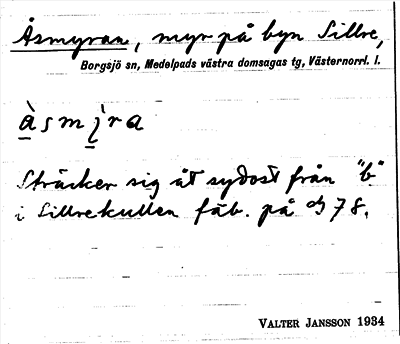 Åsmyran, myr på byn Sillre,
Borgsjö sn, Medelpads västra domsagas tg, Västernorrl. l.
àsmỳra
Sträcker sig åt sydost från "b"
i Sillrekullen fäb. på 78.
VALTER JANSSON 1934